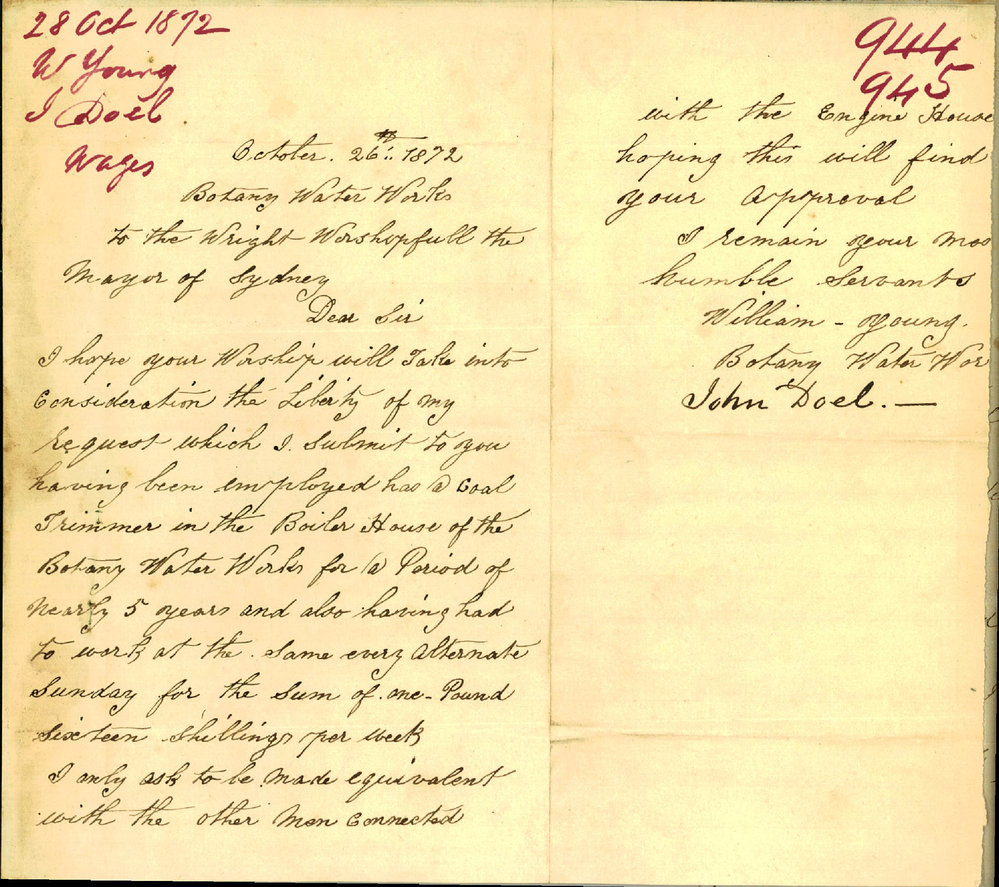 28 Oct 1872
W Young
J Doel
Wages
October. 26th 1872
Botany Water Works
to the Wright Worshopfull the
Mayor of Sydney
Dear Sir
I hope your Worship will Take into
Consideration the Liberty of my
request which I. Submit to you
having been employed has a Coal
Trimmer in the Boiler House of the
Botany Water Works for a Period of
Nearly 5 years and also having had
to work at the. Same every Alternate
Sunday for the Sum of. one-Pound
Sixteen Shillings per week
I only ask to be made equivalent
with the other Men Connected
944
945
with the Engine House
hoping this will find
your Approval
I remain your Mos
humble Servants
William - young.
Botany Water Wor
John Doel. —